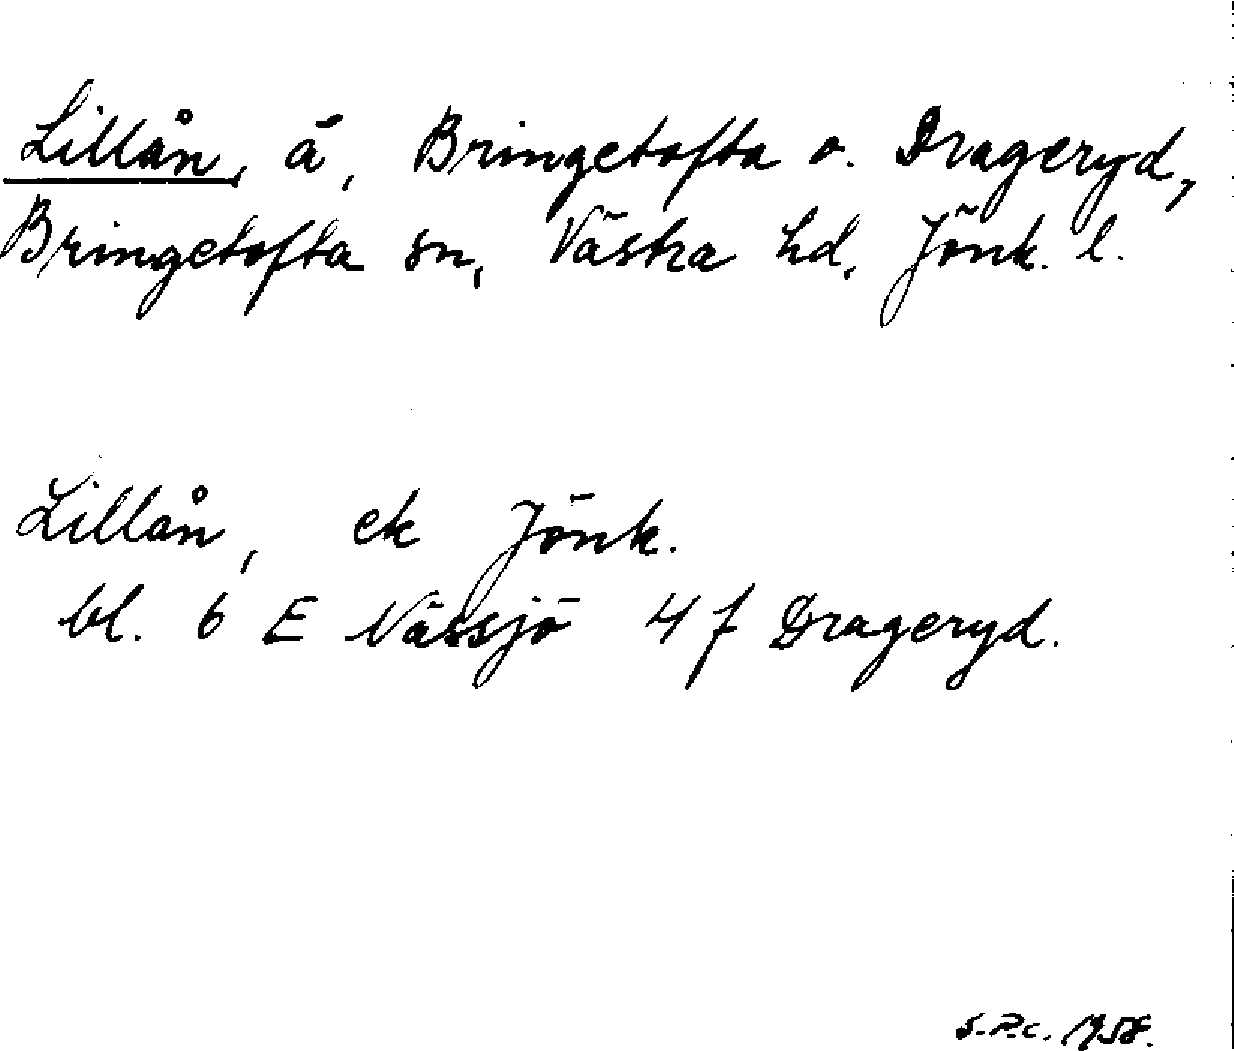 Lillån, å, Bringetofta o. Drageryd,
Bringetofta sn, Västra hd, Jönk. l.
Lillån, ek Jönk.
bl. 6 E Nässjö 4 f Drageryd.
S.P.C. 1958.